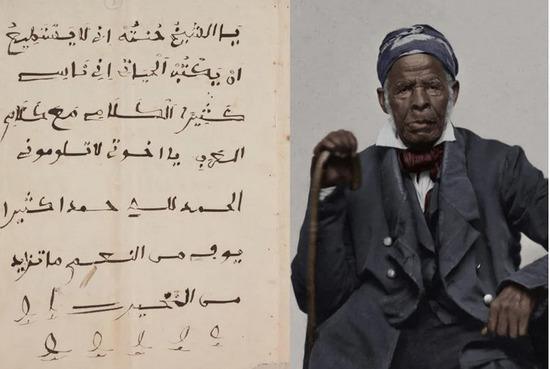 يا الشيخ حنته اني لا يستطيع
ان يكتب الحياتى انى ناس
كثيرا الكلام مع كلام
العربى يا اخوتى لا تلومونى
الحمد لله حمدا كثيرا
يوف من النعم ما تزيد
من الخيرت